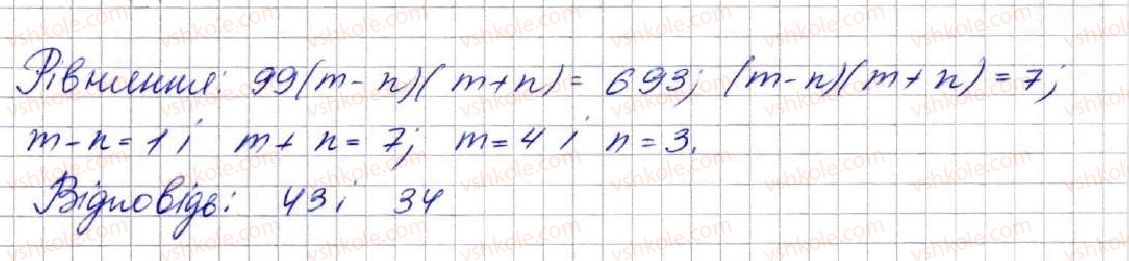 Рівняння: 99(m - n)(m + n) = 693; (m - n)(m + n) = 7;
m - n = 1 і m + n = 7; m = 4 і n = 3.
Відповідь: 43 і 34